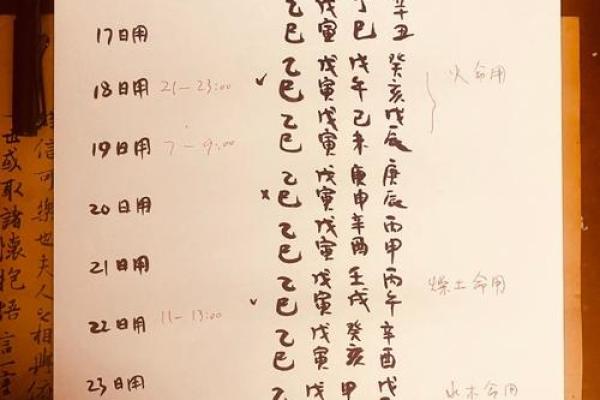 17日用 乙巳 戊寅 丁巳 辛丑
18日用 21-23:00 ✓ 乙巳 戊寅 戊午 癸亥 火命用
19日用 7-9:00 乙巳 戊寅 己未 戊辰
20日用 x 乙巳 戊寅 庚申 庚辰
21日用 乙巳 戊寅 辛酉 丙申
22日用 11-13:00 ✓ 乙巳 戊寅 壬戌 丙午 燥土命用
乙巳 戊寅 癸亥 辛酉
23日用 乙 戊 甲 戊 水木命用
信可樂也夫人之相與
或取諸懷抱悟言一